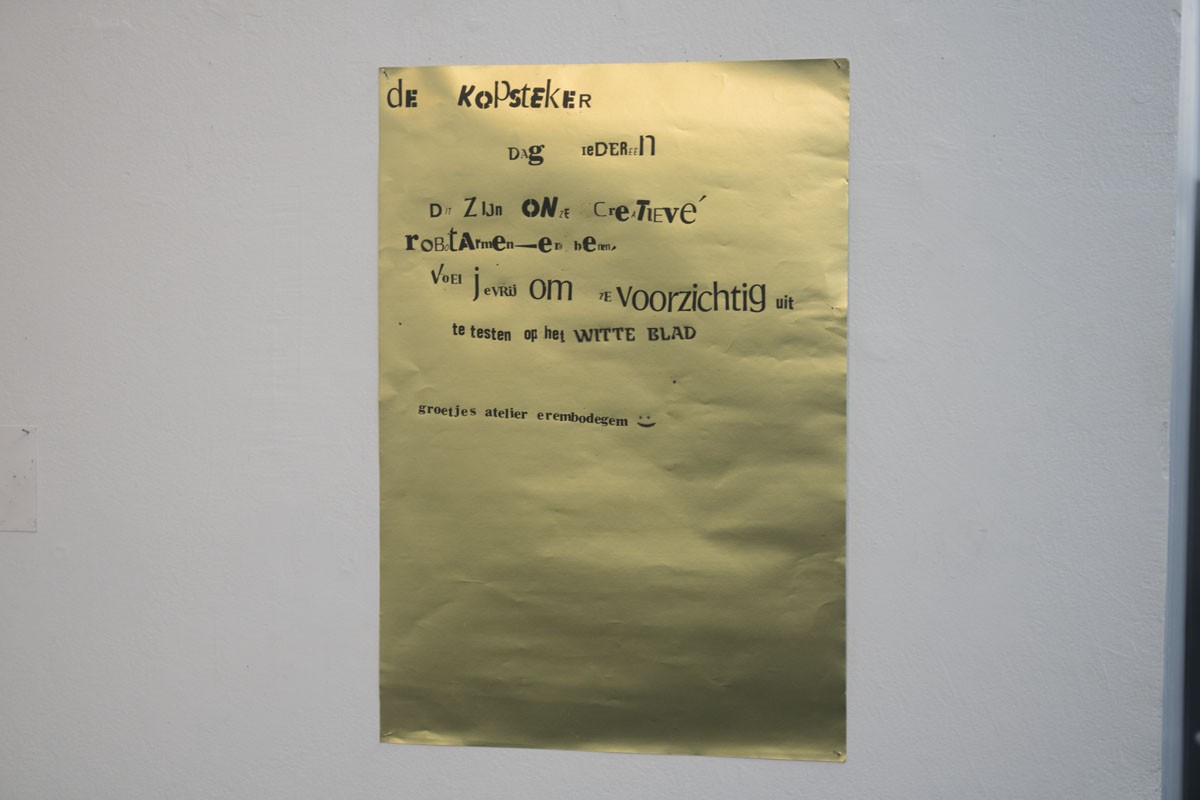 dE KOPstEkER
DAg IeDEREEn
DIT ZIJn ONZE CreATIEVe´
roBotArmen—en benen,
VOEl jeVRIJ om ZE voorzichtig uit
te testen op het WITTE BLAD
groetjes atelier erembodegem